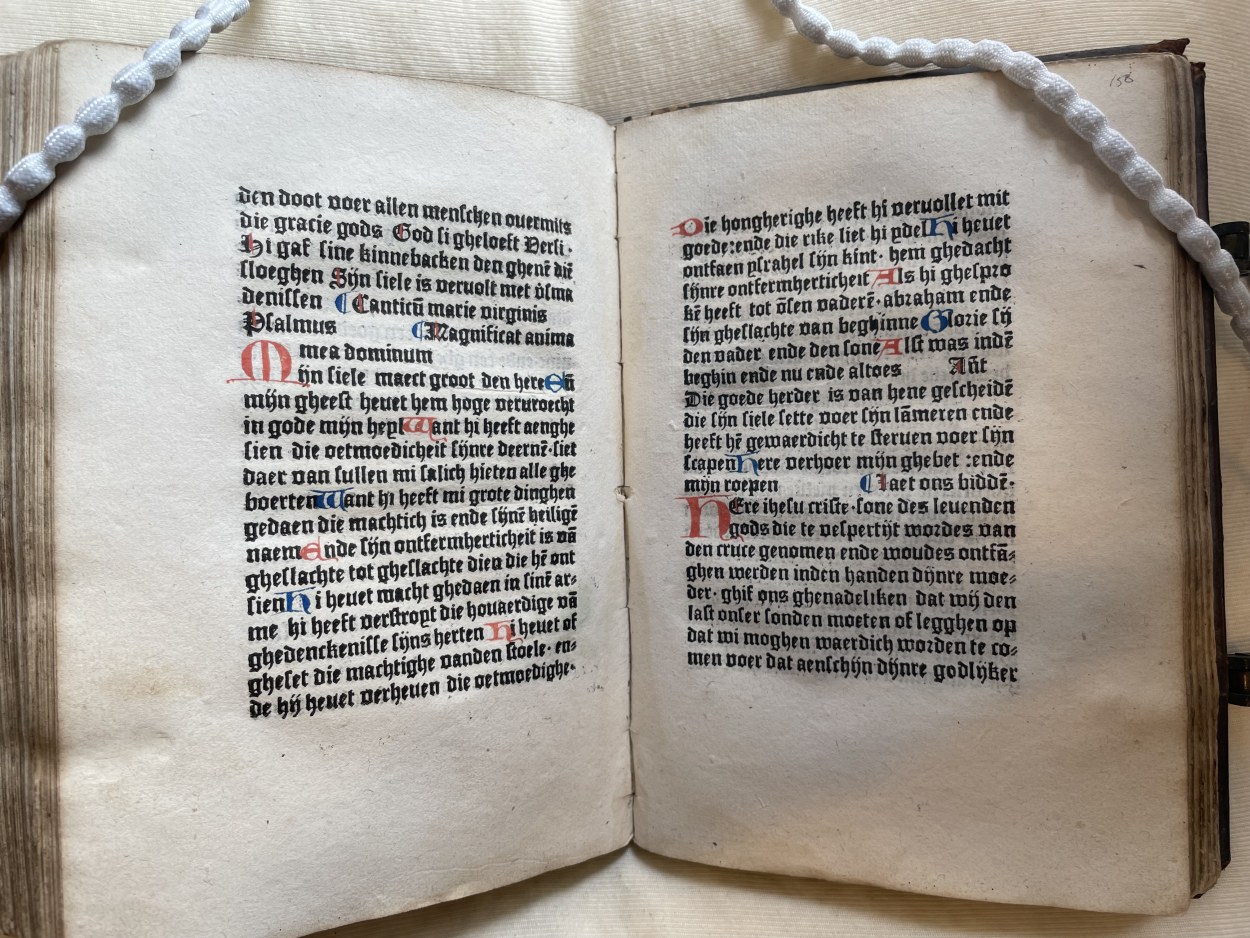 den doot voer allen menschen ouermits
die gracie gods God si gheloeft Versi·
Hi gaf sine kinnebacken den ghenē diē
sloeghen Sijn siele is veruolt met v̄sma
denissen ⸿Canticū marie virginis
Psalmus ⸿Magnificat anima
mea dominum
Mijn siele maect groot den here Eñ
mijn gheest heuet hem hoge veruroecht
in gode mijn heyl Want hi heeft aenghe
sien die oetmoedicheit sijnre deernē·siet
daer van sullen mi salich hieten alle ghe
boerten Want hi heeft mi grote dinghen
gedaen die machtich is ende sijnē heiligē
naem Ende sijn ontfermherticheit is vā
gheslachte tot gheslachte dien die hē ont
sien Hi heuet macht ghedaen in sinē ar⸗
me hi heeft verstroyt die houaerdige vā
ghedenckenisse sijns herten Hi heuet of
gheset die machtighe vanden stoele· en⸗
de hij heuet verheuen die oetmoedighe·
158
Die hongherighe heeft hi veruollet mit
goede:ende die rike liet hi ydel Hi heuet
ontfaen ysrahel sijn kint· hem ghedacht
sijnre ontfermherticheit Als hi ghespro
kē heeft tot ōsen vaderē· abraham ende
sijn gheslachte van beghinne Glorie sij
den vader ende den sone Alst was indē
beghin ende nu ende altoes Añt
Die goede herder is van hene gescheidē
die sijn siele sette voer sijn lāmeren ende
heeft hē gewaerdicht te steruen voer sijn
scapen Here verhoer mijn ghebet :ende
mijn roepen ⸿Laet ons biddē·
HEre ihesu criste·sone des leuenden
gods die te vespertijt wordes van
den cruce genomen ende woudes ontfā⸗
ghen werden inden handen dijnre moe⸗
der· ghif ons ghenadeliken dat wij den
last onser sonden moeten of legghen op
dat wi moghen waerdich worden te co⸗
men voer dat aenschijn dijnre godlijker